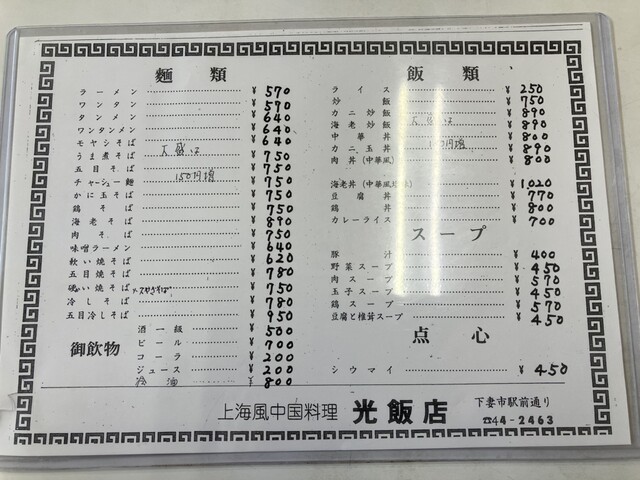 麵類
ラーメン ¥570
ワンタン ¥590
タンメン ¥640
ワンタンメン ¥640
モヤシそば ¥640
大盛は
うま煮そば ¥750
五目そば ¥750
150円増
チャーシュー麵 ¥750
かに玉そば ¥750
鶏そば ¥750
海老そば ¥890
肉そば ¥750
味噌ラーメン ¥640
軟い焼そば ¥620
五目焼そば ¥780
硬い焼そば ¥750
冷しそば ¥780
五目冷しそば ¥950
御飲物
酒一級 ¥500
ビール ¥700
コーラ ¥200
ジュース ¥200
¥800
飯類
ライス ¥250
炒飯 ¥750
カニ炒飯 ¥890
海老炒飯 ¥890
大盛は
中華丼 ¥800
150円増
カニ玉丼 ¥890
肉丼(中華風) ¥800
海老丼(中華風) ¥1,020
豆腐丼 ¥770
鶏丼 ¥800
カレーライス ¥700
スープ
豚汁 ¥400
野菜スープ ¥450
肉スープ ¥570
玉子スープ ¥450
鶏スープ ¥570
豆腐と椎茸スープ ¥450
点心
シウマイ ¥450
上海風中国料理 光飯店
下妻市駅前通り
☎44-2463